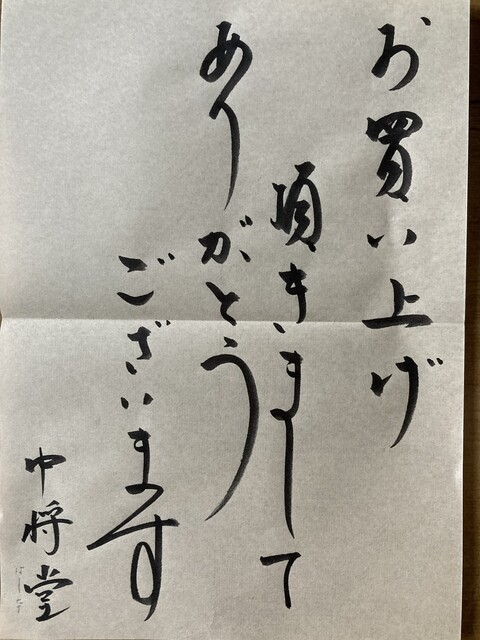 お買い上げ
頂きまして
ありがとう
ございます
中将堂